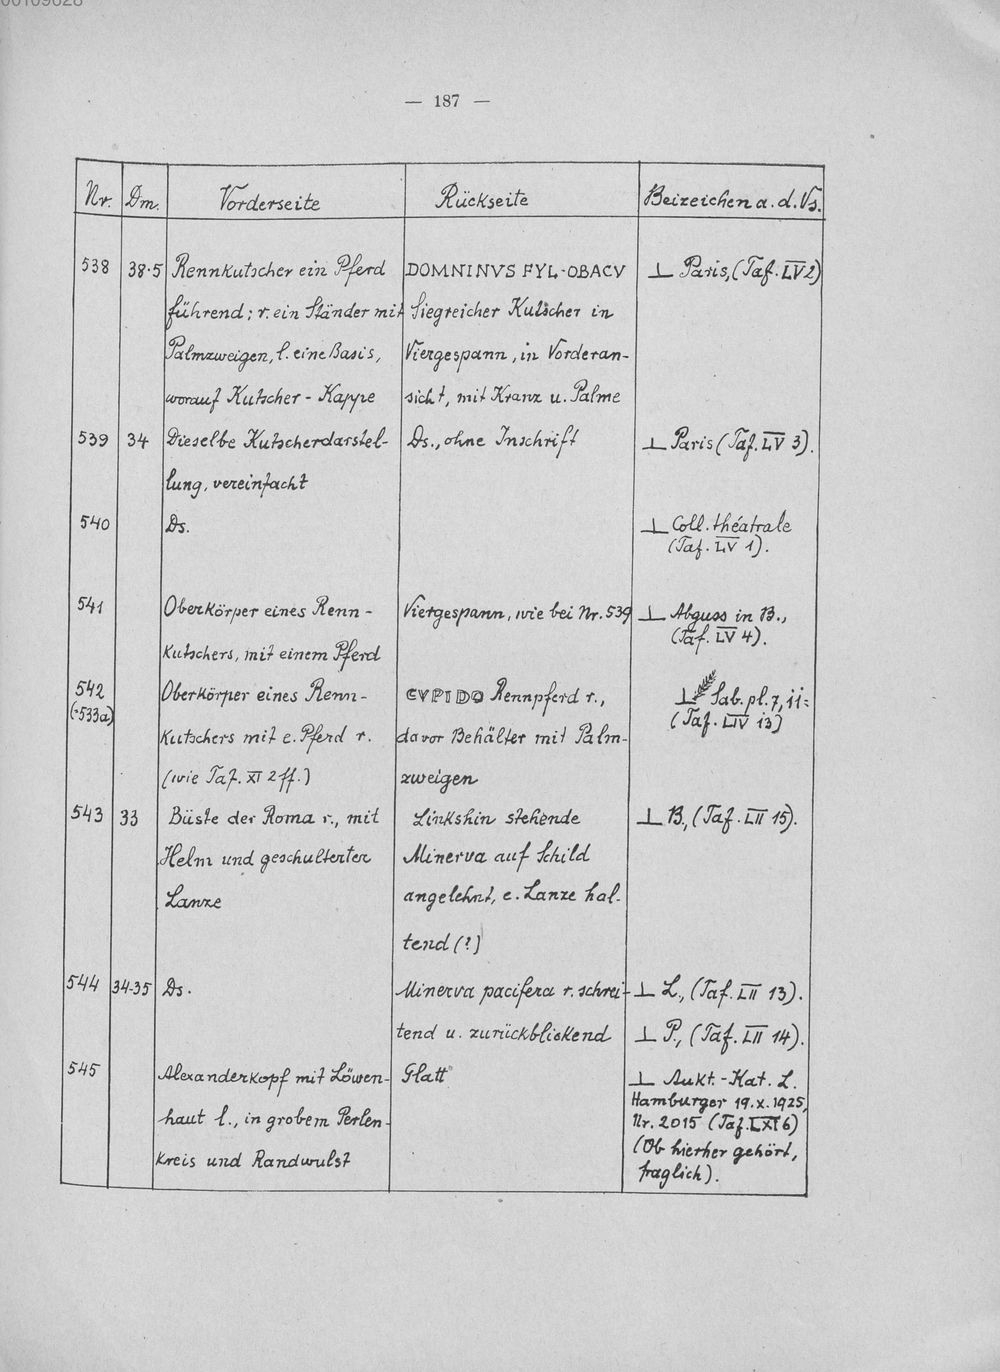 — 187 —
Nr. Dm. Vorderseite Rückseite Beizeichen a. d. Vs.
538 38·5 Rennkutscher ein Pferd DOMNINVS FYL·OBACV ⊥ Paris, (Taf. LV 2)
führend; r. ein Ständer mit Siegreicher Kutscher in
Palmzweigen, l. eine Basis, Viergespann, in Vorderan-
worauf Kutscher-Kappe sicht, mit Kranz u. Palme
539 34 Dieselbe Kutscherdarstel- Ds., ohne Inschrift ⊥ Paris (Taf. LV 3).
lung, vereinfacht
540 Ds. ⊥ Coll. théatrale
(Taf. LV 1).
541 Oberkörper eines Renn- Viergespann, wie bei Nr. 539 ⊥ Abguss in B.,
(Taf. LV 4).
Kutschers, mit einem Pferd
542 Oberkörper eines Renn- CVPIDO Rennpferd r., ⊥ Sab. pl. 7, ii =
(=533a) Kutschers mit e. Pferd r. davor Behälter mit Palm- (Taf. LIV 13)
(wie Taf. XI 2ff.) zweigen
543 33 Büste der Roma r., mit Linkshin stehende ⊥ B., (Taf. LII 15).
Helm und geschulterter Minerva auf Schild
Lanze angelehnt, e. Lanze hal-
tend (?)
544 34-35 Ds. Minerva pacifera r. schrei- ⊥ L., (Taf. LII 13).
tend u. zurückblickend ⊥ P., (Taf. LII 14).
545 Alexanderkopf mit Löwen- Glatt ⊥ Aukt.-Kat. L.
Hamburger 19.X.1925,
haut l., in grobem Perlen- Nr. 2015 (Taf. LXI 6)
(Ob hierher gehört,
Kreis und Randwulst fraglich).